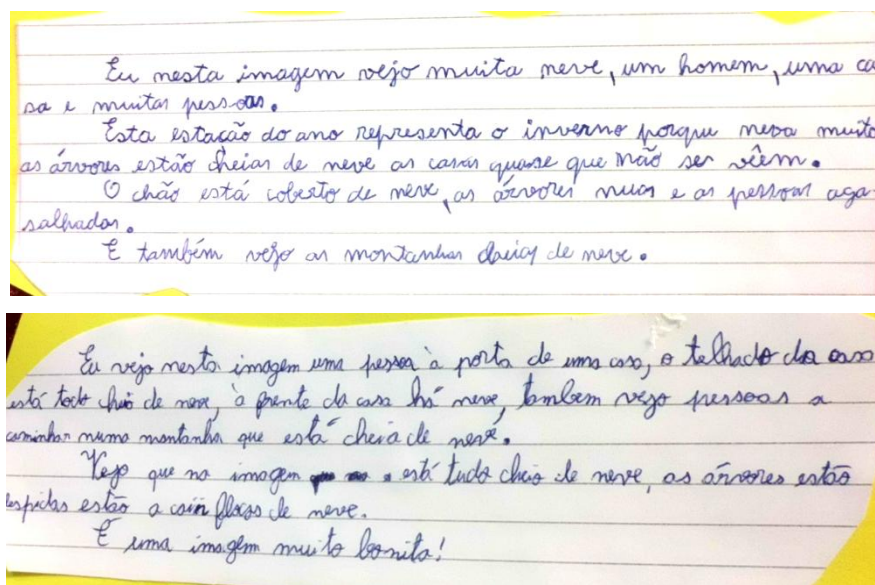 Eu nesta imagem vejo muita neve, um homem, uma ca
sa e muitas pessoas.
Esta estação do ano representa o inverno porque neva muito
as árvores estão cheias de neve as casas quase que não ser vêem.
O chão está coberto de neve, as árvores nuas e as pessoas aga-
salhadas.
E também vejo as montanhas cheias de neve.
Eu vejo nesta imagem uma pessoa à porta de uma casa, o telhado da casa
está todo cheio de neve, à frente da casa há neve, tambem vejo pessoas a
caminhar numa montanha que está cheia de neve.
Vejo que na imagem está tudo cheio de neve, as árvores estão
despidas estão a cair flocos de neve.
É uma imagem muito bonita!